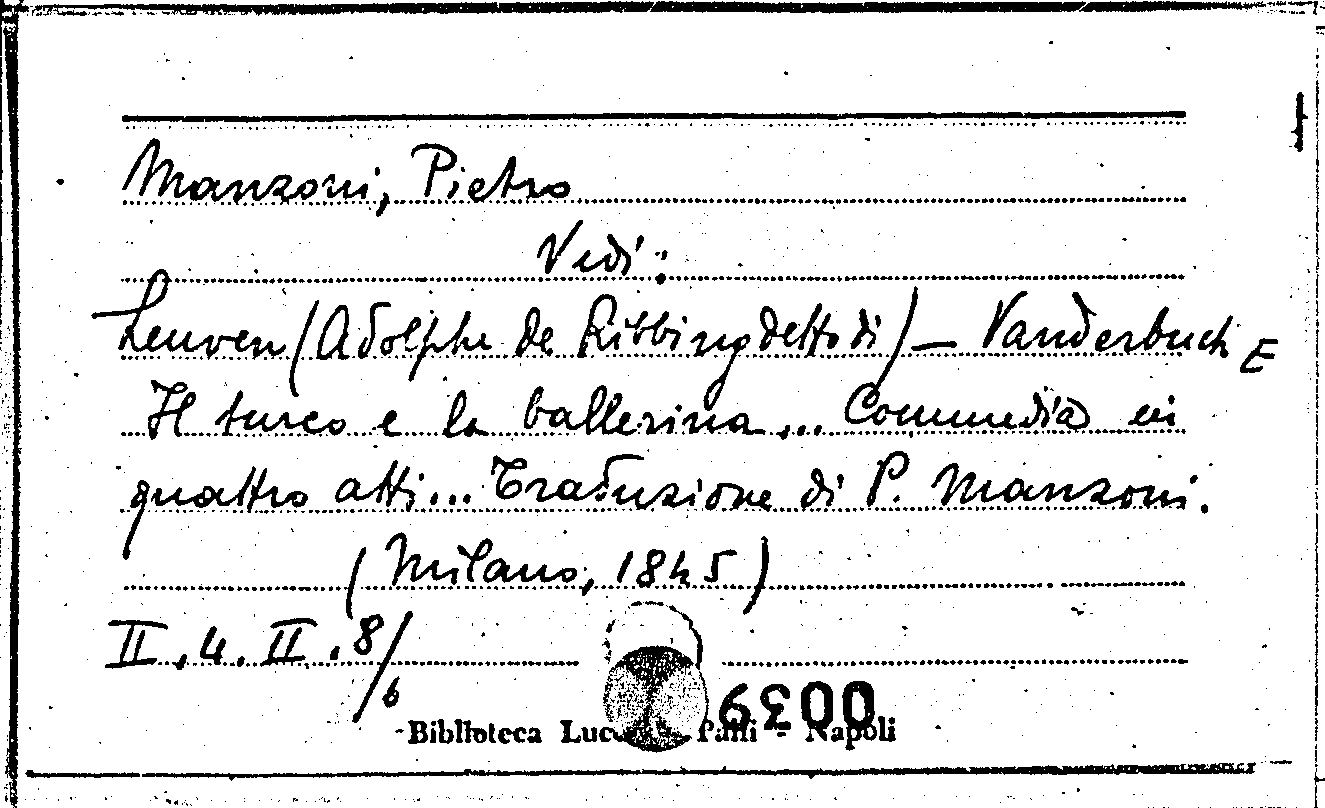 Manzoni, Pietro
Vedi:
Leuven (Adolphe de Ribbing detto di) – Vanderbuch E
Il turco e la ballerina... Commedia in
quattro atti... Traduzione di P. Manzoni.
(Milano, 1845)
II.4.II.8/6
0039
Biblioteca Palli - Napoli